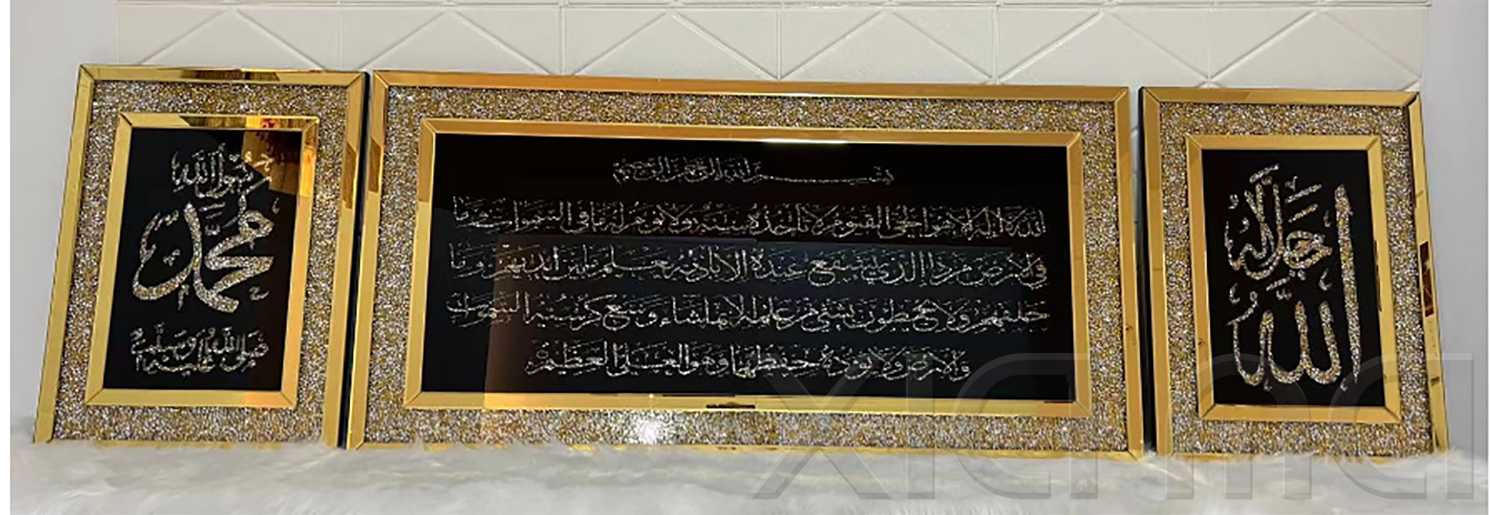 الله جل جلاله
بسم الله الرحمن الرحيم
الله لا إله إلا هو الحي القيوم لا تأخذه سنة ولا نوم له ما في السموات وما
في الأرض من ذا الذي يشفع عنده إلا بإذنه يعلم ما بين أيديهم وما
خلفهم ولا يحيطون بشيء من علمه إلا بما شاء وسع كرسيه السموات
والأرض ولا يؤده حفظهما وهو العلي العظيم
رسول الله
محمد
صلى الله عليه وسلم
xianma